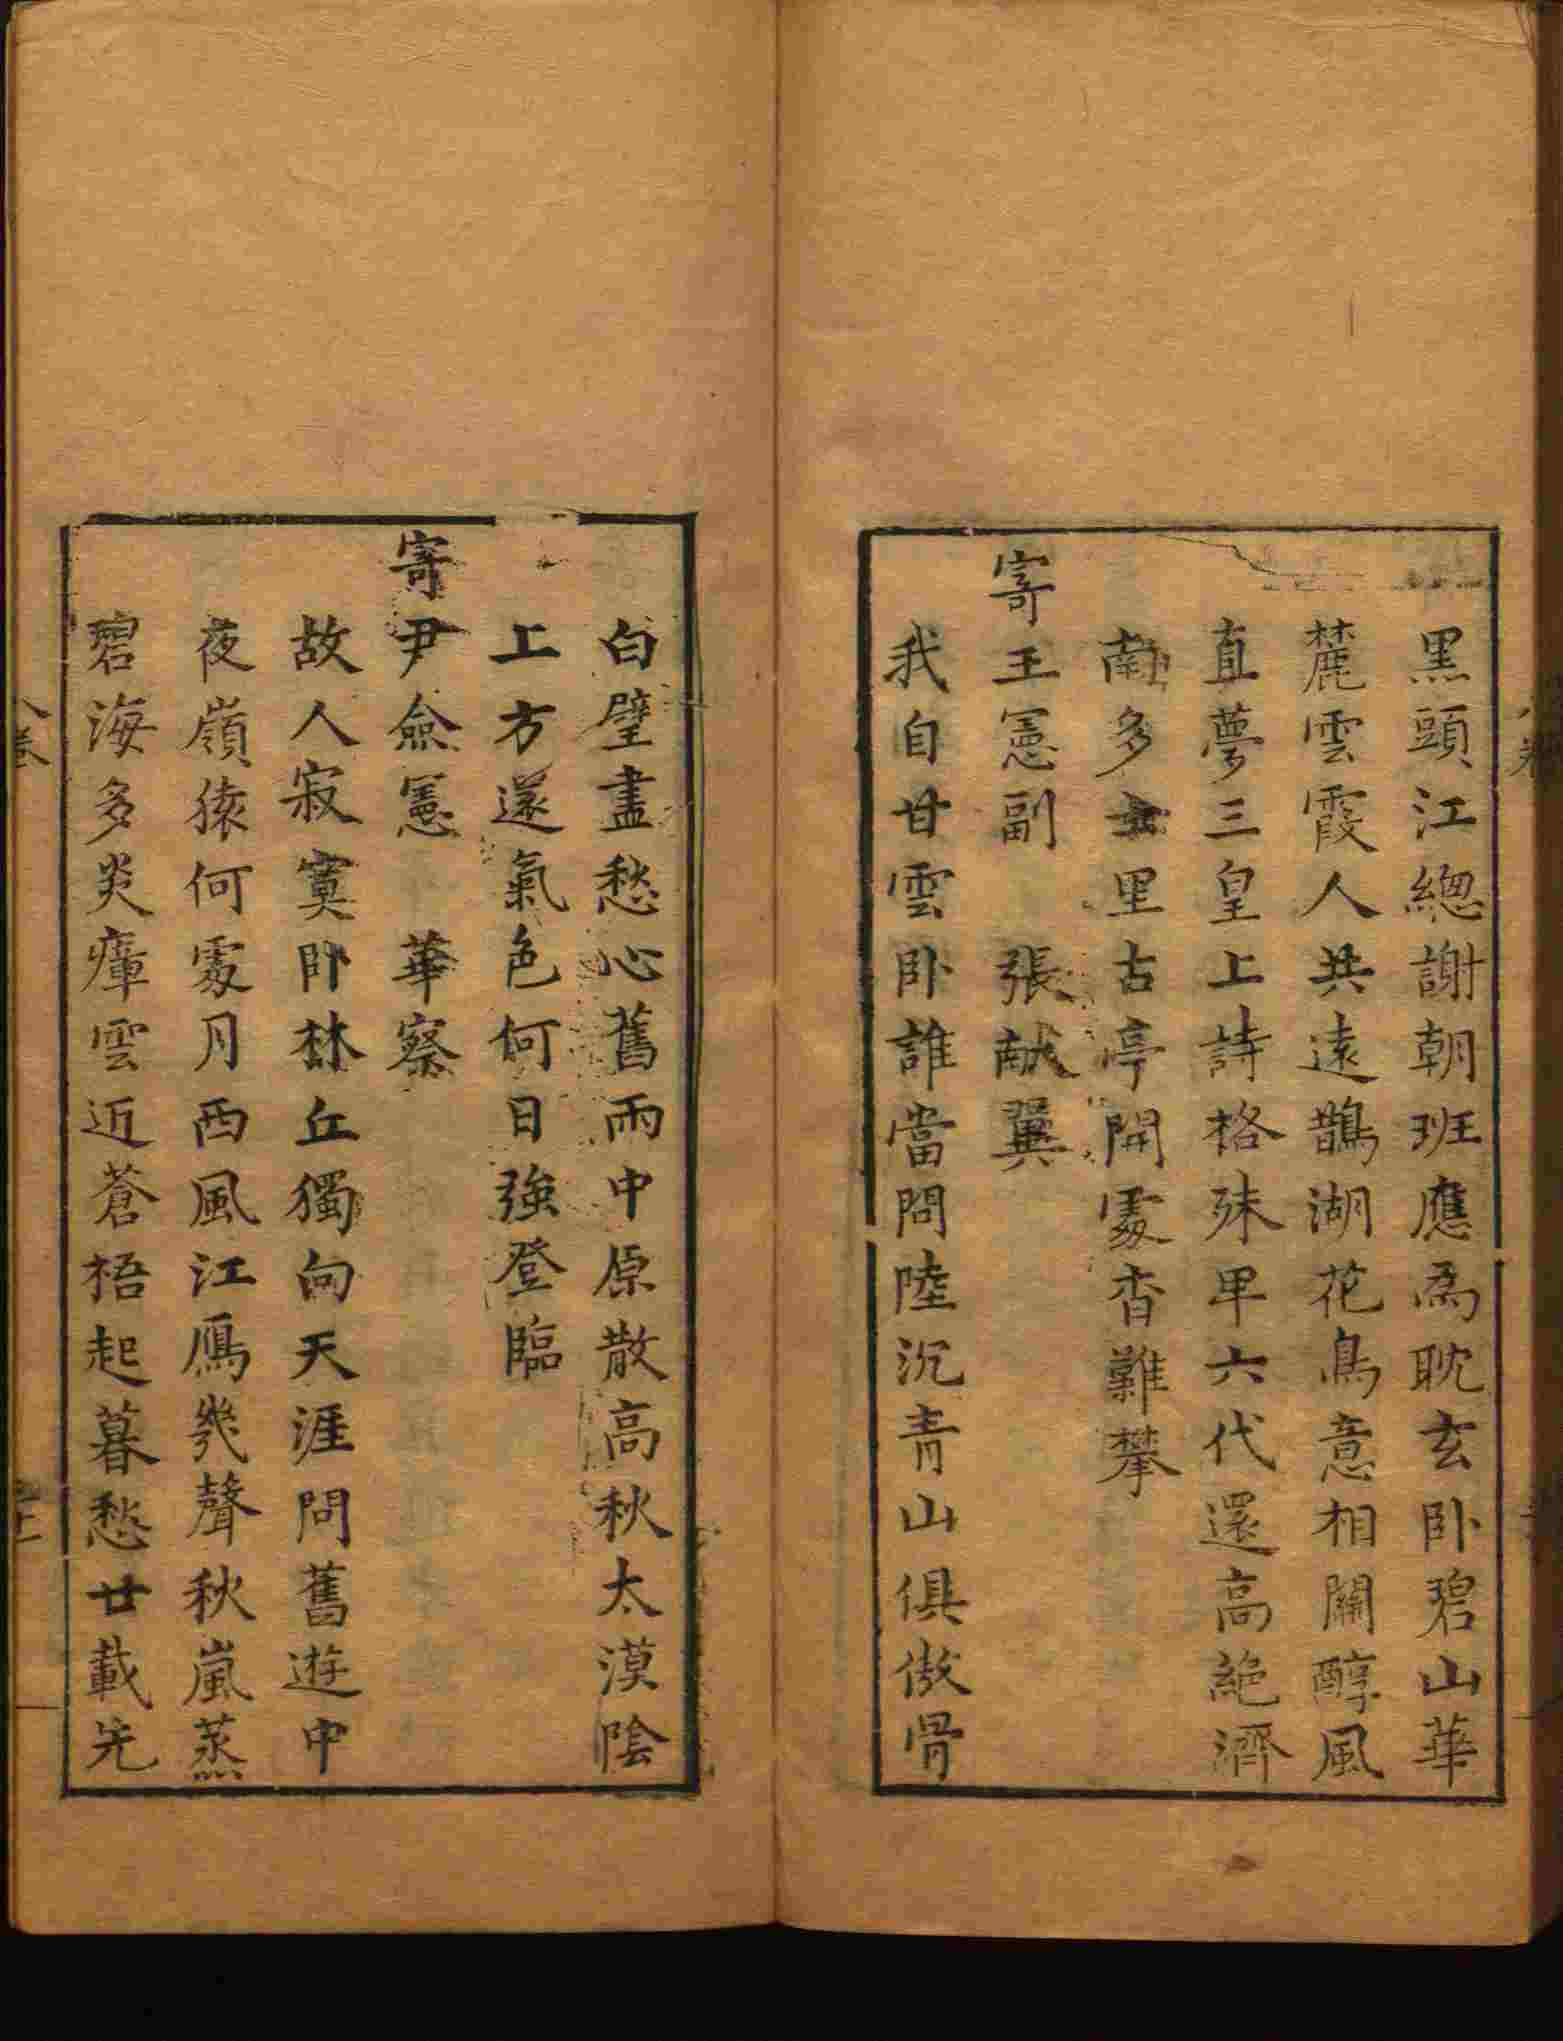 黑頭江總謝朝班應為耽玄卧碧山華
麓雲霞人共遠鵲湖花鳥意相關醇風
直夢三皇上詩格殊卑六代還高絕濟
南多士里古亭開處杳難攀
寄王憲副　張献翼
我自甘雲卧誰當問陸沉青山俱傲骨
白璧盡愁心舊雨中原散高秋太漠陰
上方遂氣色何日強登臨
寄尹僉憲　華察
故人寂寞卧林丘獨向天涯問舊遊中
夜嶺猿何處月西風江鴈幾聲秋嵐蒸
碧海多炎瘴雲近蒼梧起暮愁廿載先